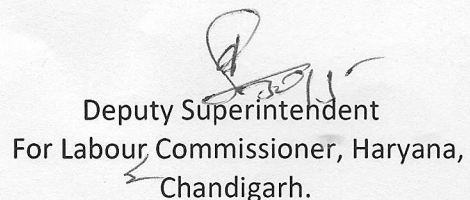 Deputy Superintendent
For Labour Commissioner, Haryana,
Chandigarh.